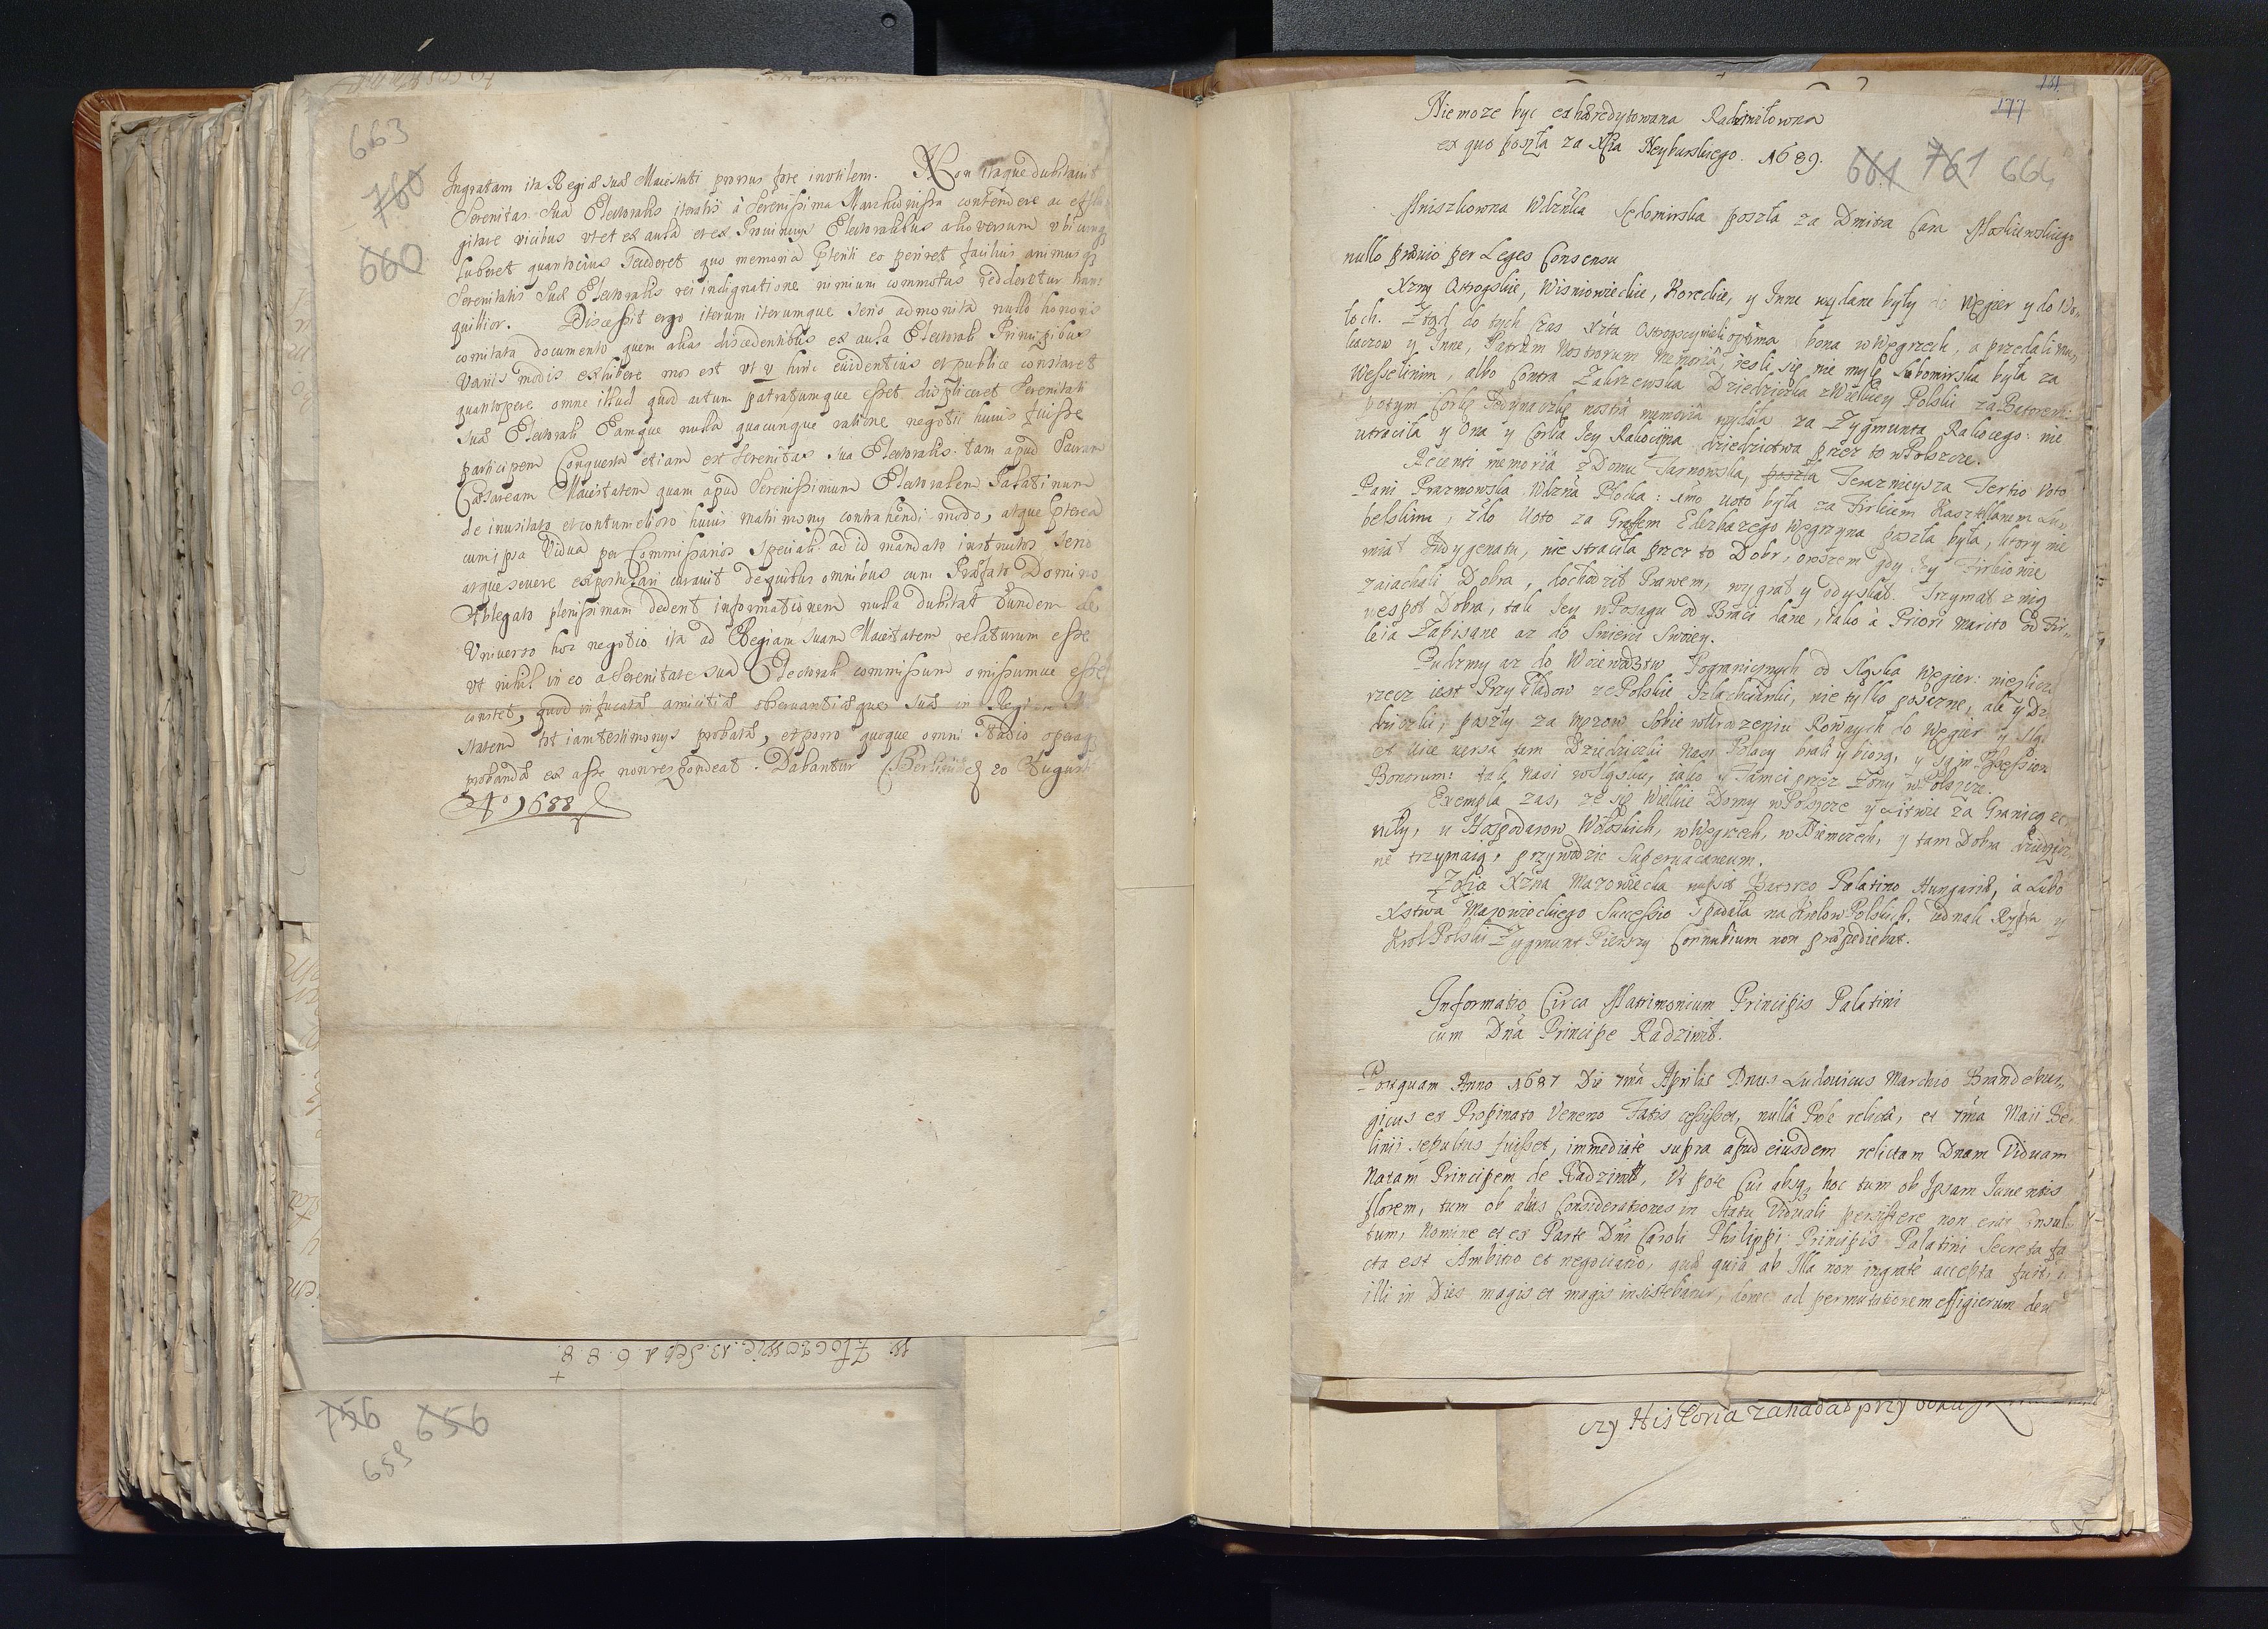 663
760
660
Ingratam ita Regiæ suæ Maiestati prorsus fore inutilem. Non itaque dubitauit
Serenitas Sua Electoralis iteratis à Serenissima Marchionissa contendere ac efla
gitare vicibus vt et ex aula et ex Prouincijs Electoralibus alioversum vbicunq
luberet quantocius secederet quo memoria ptenti eo periret facilius animusq
Serenitatis Suæ Electoralis rei indignatione nimium commotus redderetur tran
quillior. Discessit ergo iterum iterumque serio admonita nullo honoris
comitata documento quem alias discedentibus ex aula Electorali Principibus
varijs modis exhibere mos est vt v hinc euidentius et publice constaret
quantopere omne illud quod actum patratumque esset displiceret Serenitati
suæ Electorali Eamque nulla quacunque ratione negotii huius fuisse
participem Conquesta etiam est Serenitas sua Electoralis tam apud Sacram
Cæsaream Maiestatem quam apud Serenissimum Electoralem Palatinum
de inusitato et contumelioso huius matrimony contrahendi modo, atque pterea
cum ipsa Vidua per Commissarios speciali ad id mandato instructos serio
atque severe expostulari curauit de quibus omnibus cum Præfato Domino
Ablegato plenissimam dederit informationem nulla dubitat Eundem de
Vniverso hoc negotio ita ad Regiam suam Maiestatem relaturum esse
vt nihil in eo a Serenitate sua Electorali commissum omissumue esse
constet, quod infucatæ amicitiæ obseruantiæque suæ in Regiam
statem tot iam testimonys probatæ, et porro quoque omni studio operaq
probandæ ex asse non respondeat. Dabantur 20 Augusti
Aº 1688
W. Złoczowie. 13. Feb 1. 6. 8. 8.
756 656
659
177
Nie moze byc exhæredytowana Radziwiłowna
ex quo poszła za Xcia Neyburskiego. 1689.
661 761 664
Mniszkowna Wdzńka Sędomirska poszła za Dmitra Cara Moskiewskiego
nullo prævio per Leges Consensu
Xzny Ostrogskie, Wisniowieckie, Koreckie, y Inne wydane były do Węgier y do Wo„
łoch. Ztąd do tych czas Xzta Ostrogscy mieli optima bona w Węgrzech, a przedali
liaczow y Inne, Patrum Nostrorum Memoriâ, iesli się nie mylę Lubomirska była za
Wesselinim, albo Contra Zakrzewska Dziedziczka z Wielkiey Polski za Batorem:
potym Corkę Iedynaczkę nostrâ memoriâ wydała za Zygmunta Rakocego: nie
utraciła y Ona y Corka Iey Rakocyna dziedzictwa przez to w Polszcze.
Recenti memoriâ z Domu Tarnowska, poszła Teraznieysza Tertio Voto
Pani Prazmowska Wdzńa Płocka: 1mo voto była za Firleiem Kasztellanem Lu„
belskim, 2do Voto za Graffem Elezbazego Węgrzyna poszła była, ktory nie
miał Indygenatu, nie straciła przez to Dobr, owszem gdy Iey Firleiowie
zaiachali Dobra, dochodził Prawem, wygrał y odyskał. Trzymał z nią
wespoł Dobra, tak Iey w Posagu od Braci dane, iako à Priori Marito od Fir„
leia Zapisane az do Smierci Swoiey.
Pudzmy az do Woiewodztw Pogranicznych od Sląska Węgier: niezliczo
rzecz iest Przykładow ze Polskie Szlachcianki, nie tylko posazne, ale y Dz
dziczki, poszły za Męzow Sobie w Urodzeniu Rownych do Węgier y Slą
et vice versa tam Dziedziczki Nasi Polacy brali y biorą, y są in Possession
Bonorum: tak Nasi w Sląsku, iako y Tamci przez Zony w Polszcze.
Exempla zas, ze się Wielkie Domy w Polszcze y Litwie za Granicą ze
niły, u Hospodarow Wołoskich, w Węgrzech, w Niemczech, y tam Dobra dziedzicz
ne trzymaią, przywodzic Supervacaneum.
Zofia Xzna Mazowiecka nupsit Batoreo Palatino Hungariæ, a Lubo
Xstwa Mazowieckiego Successio spadała na Krolow Polskich. iednak Rzpta y
Krol Polski Zygmunt Pierszy Connubium non præpediebat.
Informatio Circa Matrimonium Principis Palatini
cum Dña Principe Radziwił.
Postquam Anno 1687 Die 7ma Aprilis Dnus Ludouicus Marchio Brandebur„
gicus ex Propinato Veneno Fatis cessisset, nullâ Prole relictâ, et 7ma Maii Be„
linii sepultus fuisset, immediatè supra apud eiusdem relictam Dnam Viduam
Natam Principem de Radziwił, Vt pote Cui absq hoc tum ob Ipsam Iuventis
florem, tum ob alias Considerationes in Statu Viduali persistere non erat Insul
tum, Nomine et ex Parte Dni Caroli Philippi Principis Palatini Secreta fa
cta est Ambitio et negotiatio, quæ quia ab Illa non ingratè accepta fuit,
illi in Dies magis et magis insistebatur, donec ad permutationem effigierum den
czy Historia zakadał przy